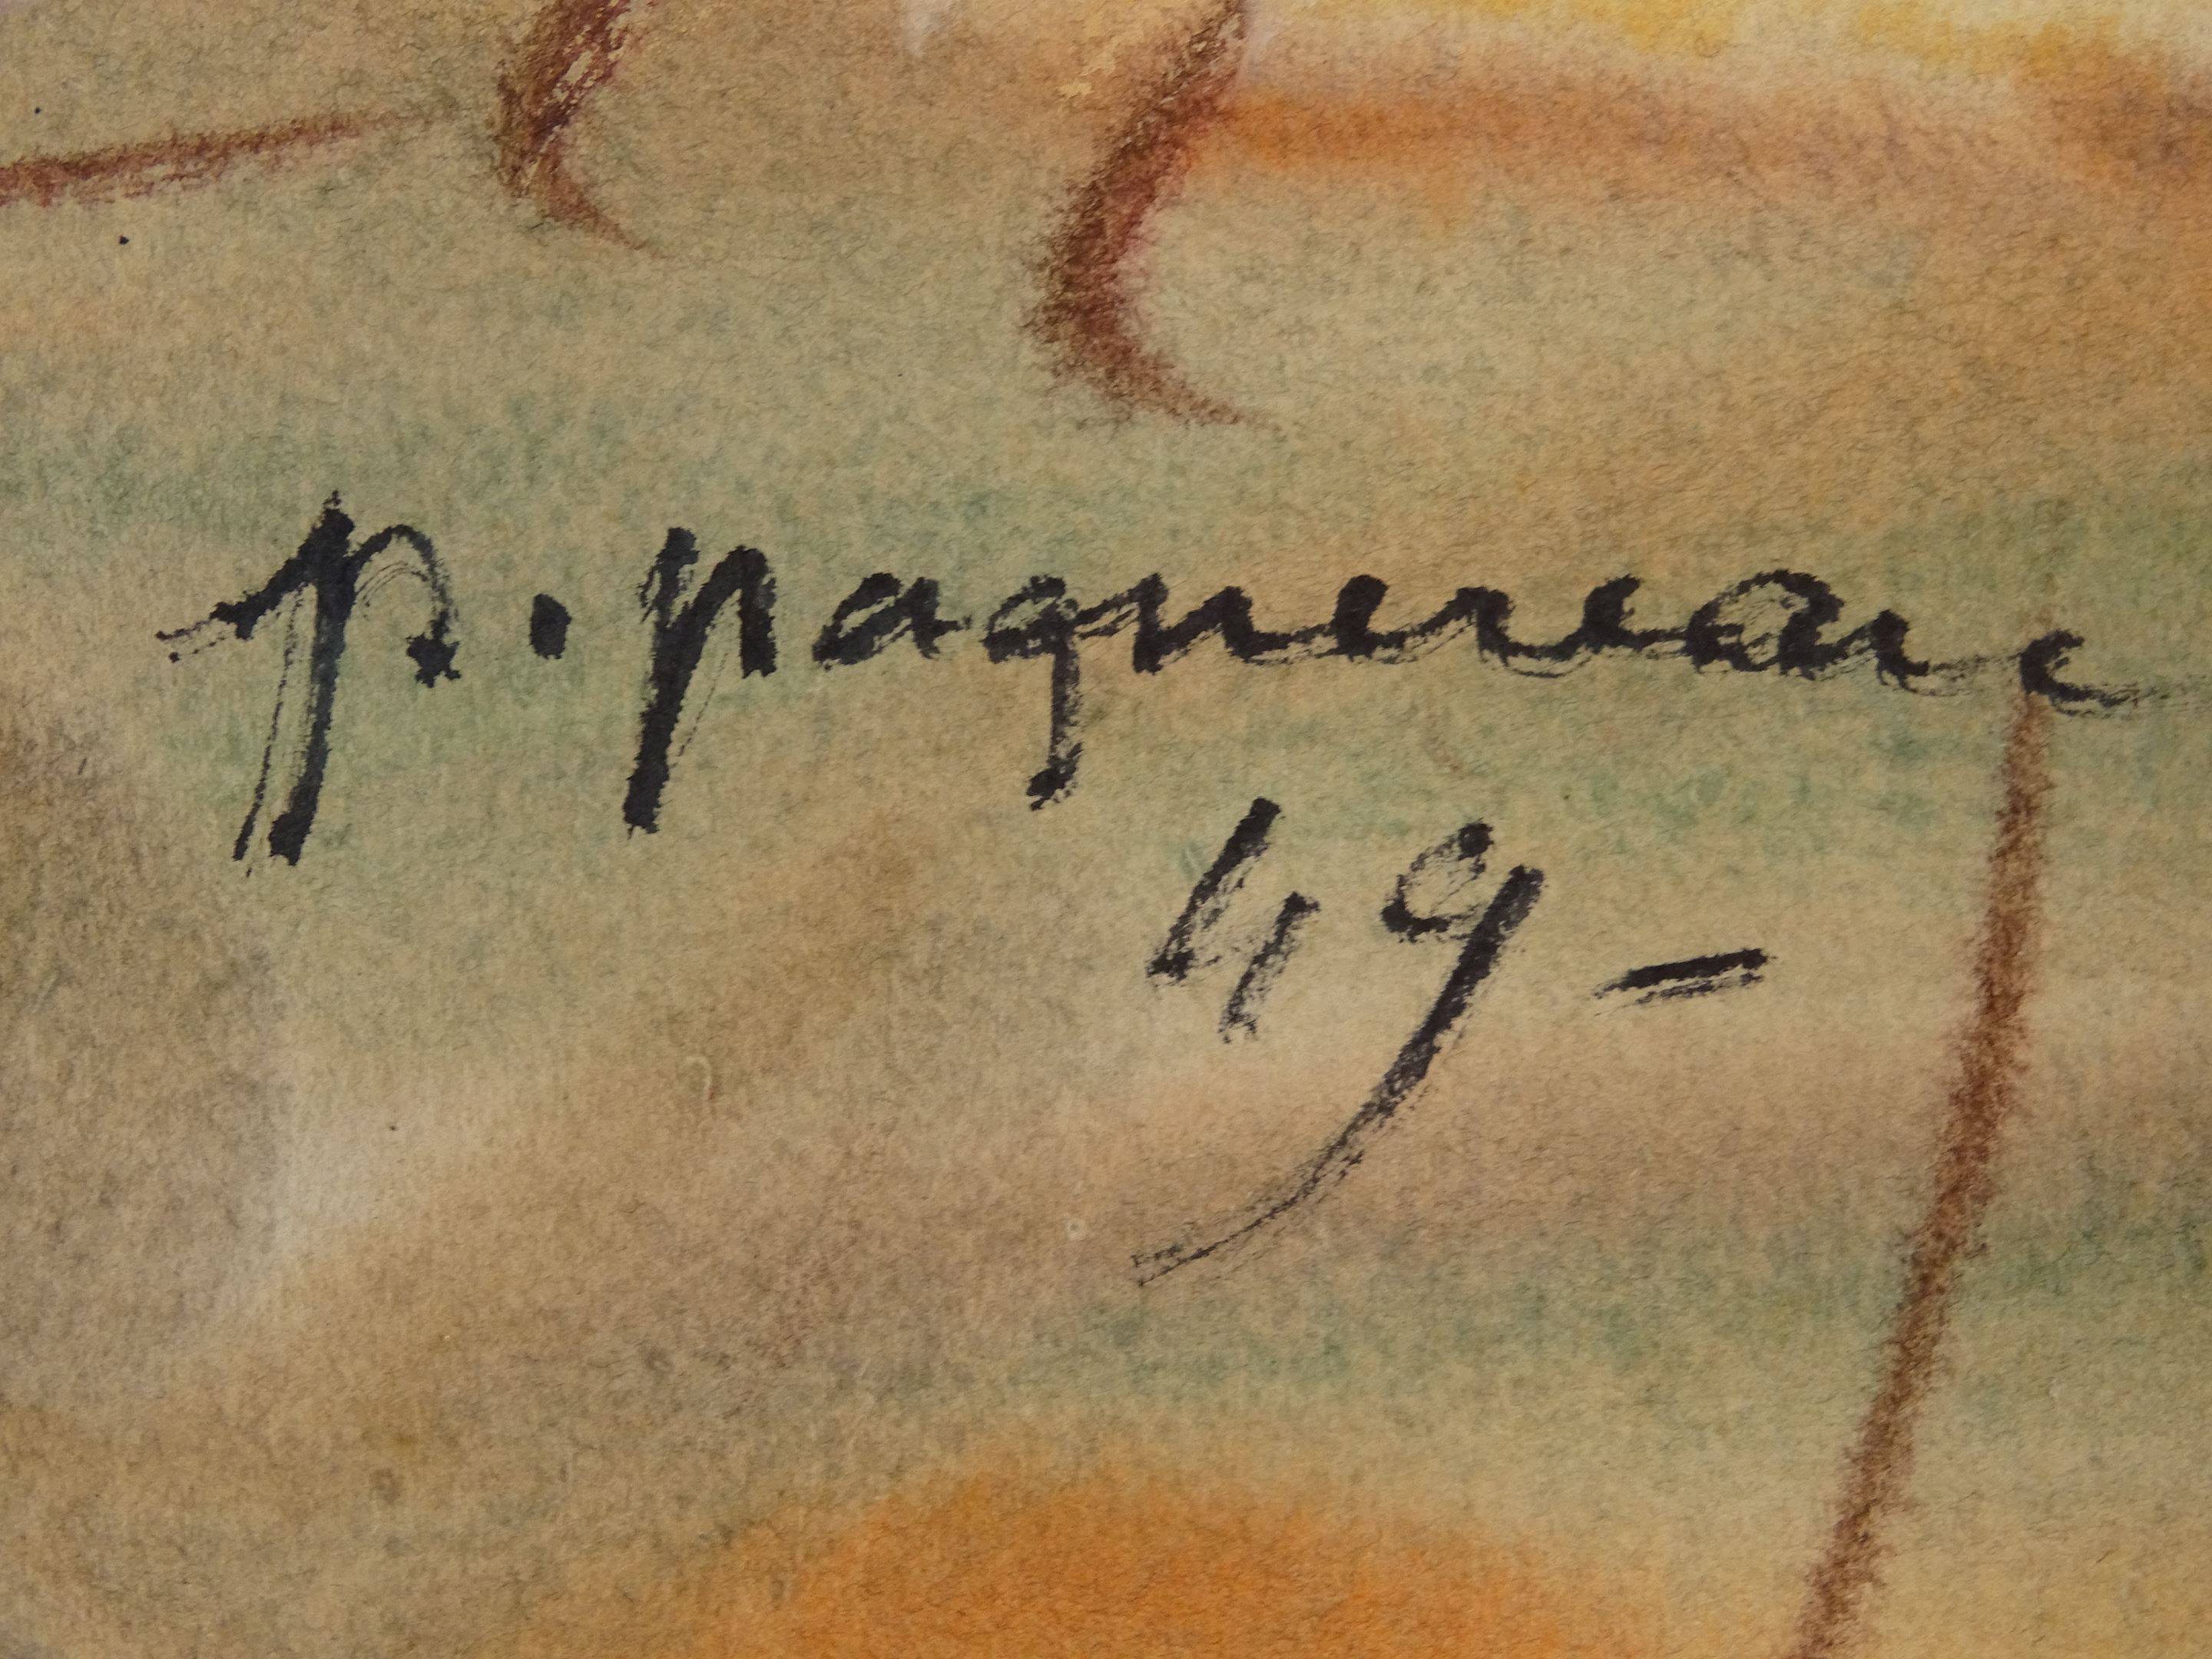 p. paquereau
49-